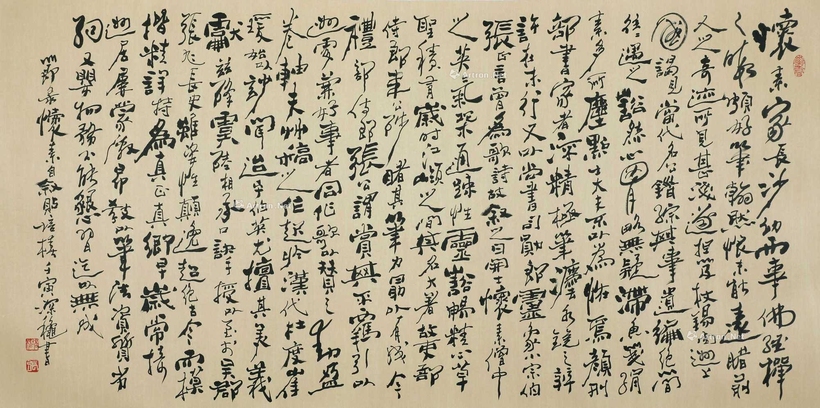 懷素家長沙幼而事佛經禪
之暇頗好筆翰然恨未能遠睹前
人之奇迹所見甚淺遂担笈杖錫西遊上
國謁見當代名公錯綜其事遺編絕簡
往往遇之豁然心胸略無疑滯魚箋絹
素多所塵點士大夫不以為怪焉顏刑
部書家者流精極筆法水鏡之辨
許在末行又以尚書司勛郎盧象小宗伯
張正言曾為歌詩故叙之曰開士懷素僧中
之英氣概通疏性靈豁暢精心草
聖積有歲時江嶺之間其名大著故吏部
侍郎韋公陟睹其筆力勖以有成今
禮部侍郎張公謂賞其不羈引以
遊處兼好事者同作歌以贊之動盈
卷軸夫草稿之作起於漢代杜度崔
瑗始以妙聞迨乎伯英尤擅其美羲
獻茲降虞陸相承口訣手授以至於吳郡
張旭長史雖姿性顛逸超絕古今而模
楷精詳特為真正真卿早歲常接
遊居屢蒙激昂教以筆法資質劣
弱又嬰物務不能懇習迄以無成
節录懷素自叙貼壬寅深書